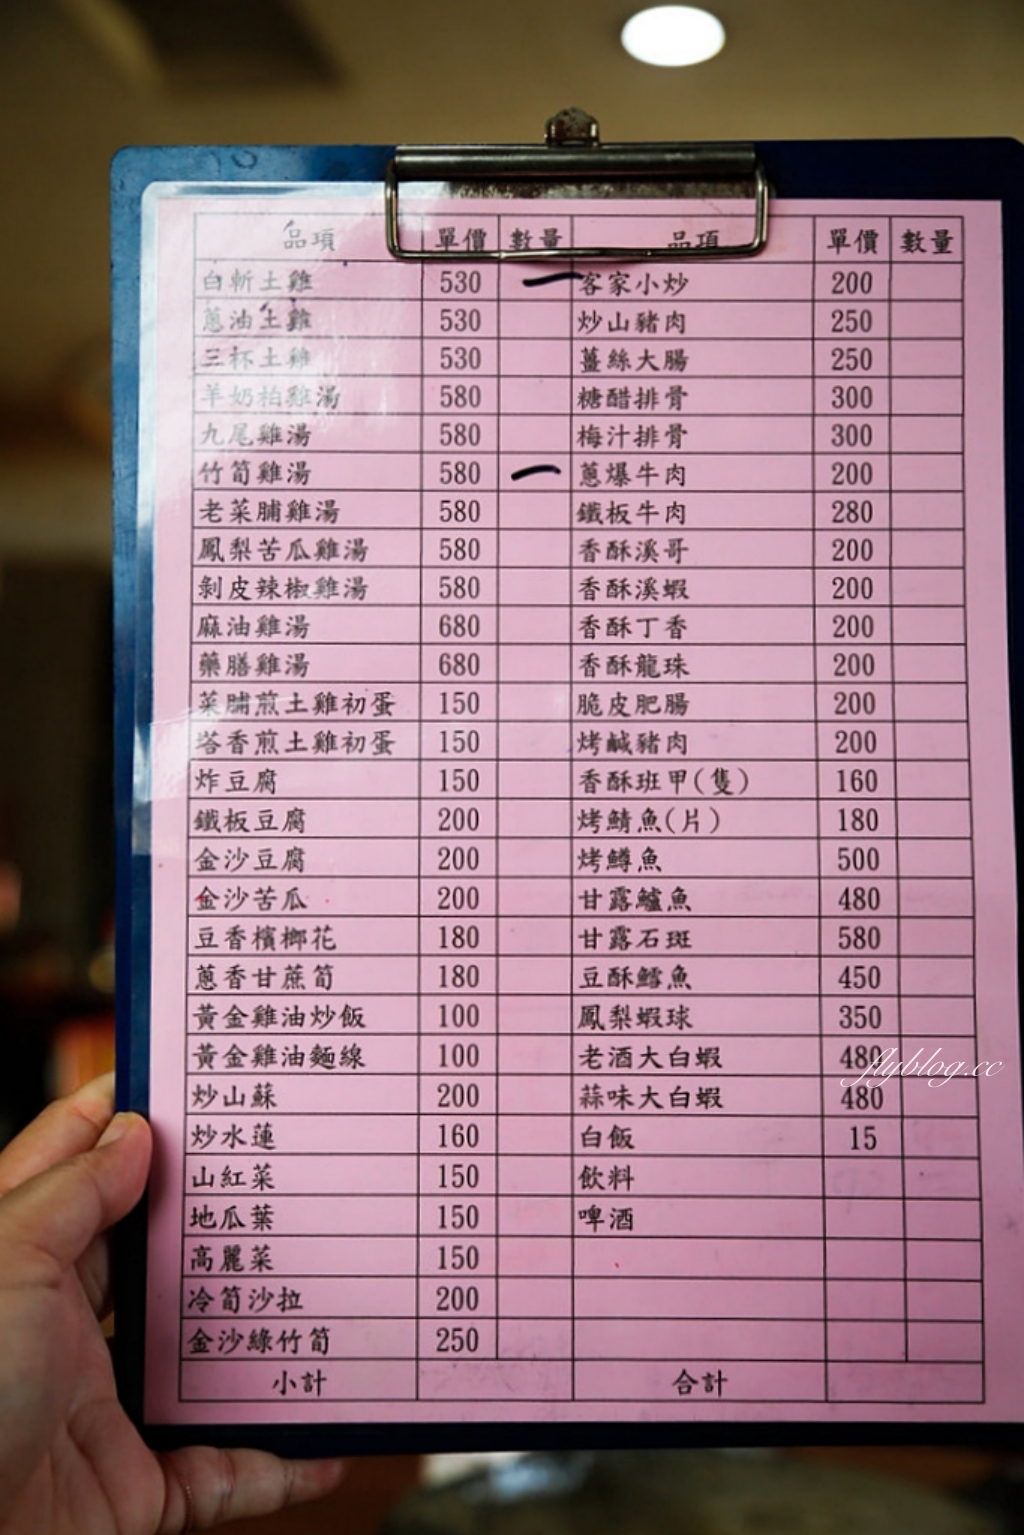 品項 單價 數量 品項 單價 數量
白斬土雞 530 一 客家小炒 200
蔥油土雞 530 炒山豬肉 250
三杯土雞 530 薑絲大腸 250
羊奶柏雞湯 580 糖醋排骨 300
九尾雞湯 580 梅汁排骨 300
竹筍雞湯 580 一 蔥爆牛肉 200
老菜脯雞湯 580 鐵板牛肉 280
鳳梨苦瓜雞湯 580 香酥溪哥 200
剝皮辣椒雞湯 580 香酥溪蝦 200
麻油雞湯 680 香酥丁香 200
藥膳雞湯 680 香酥龍珠 200
菜脯煎土雞初蛋 150 脆皮肥腸 200
塔香煎土雞初蛋 150 烤鹹豬肉 200
炸豆腐 150 香酥班甲(隻) 160
鐵板豆腐 200 烤鯖魚(片) 180
金沙豆腐 200 烤鱒魚 500
金沙苦瓜 200 甘露鱸魚 480
豆香檳榔花 180 甘露石斑 580
蔥香甘蔗筍 180 豆酥鱈魚 450
黃金雞油炒飯 100 鳳梨蝦球 350
黃金雞油麵線 100 老酒大白蝦 480
flyblog.cc
炒山蘇 200 蒜味大白蝦 480
炒水蓮 160 白飯 15
山紅菜 150 飲料
地瓜葉 150 啤酒
高麗菜 150
冷筍沙拉 200
金沙綠竹筍 250
小計 合計